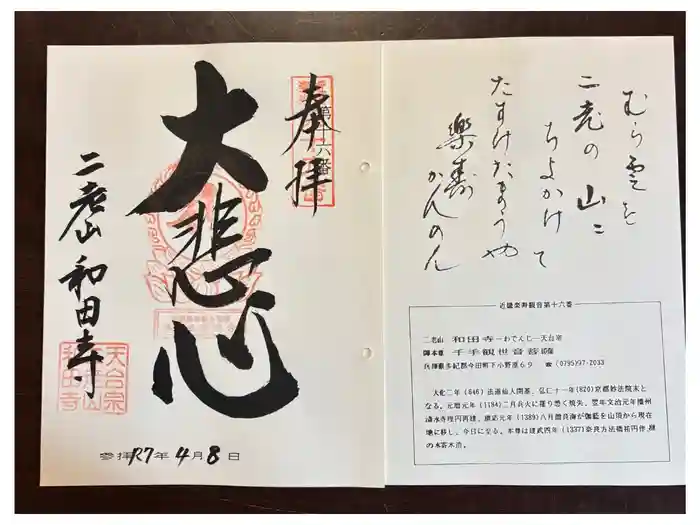 奉拝
第十六番
大悲心
二老山 和田寺
天台宗
二老山
和田寺
参拝R7年4月8日
むら雲を
二老の山に
ちよかけて
たすけたもうや
楽寿
かんのん
近畿楽寿観音第十六番
二老山 和田寺―わでんじ―天台宗
御本尊 千手観世音菩薩
兵庫県多紀郡今田町下小野原69 ☎(0795)97-2033
大化二年(646)法道仙人開基、弘仁十一年(820)京都妙法院末と
なる。元暦元年(1184)二月兵火に罹り悉く焼失、翌年文治元年播州
清水寺
再建、康応元年(1389)八月
伽藍を山頂から現在
地に移し、今日に至る。本尊は建武四年(1337)奈良方法橋祐円作、
の木寄木造。